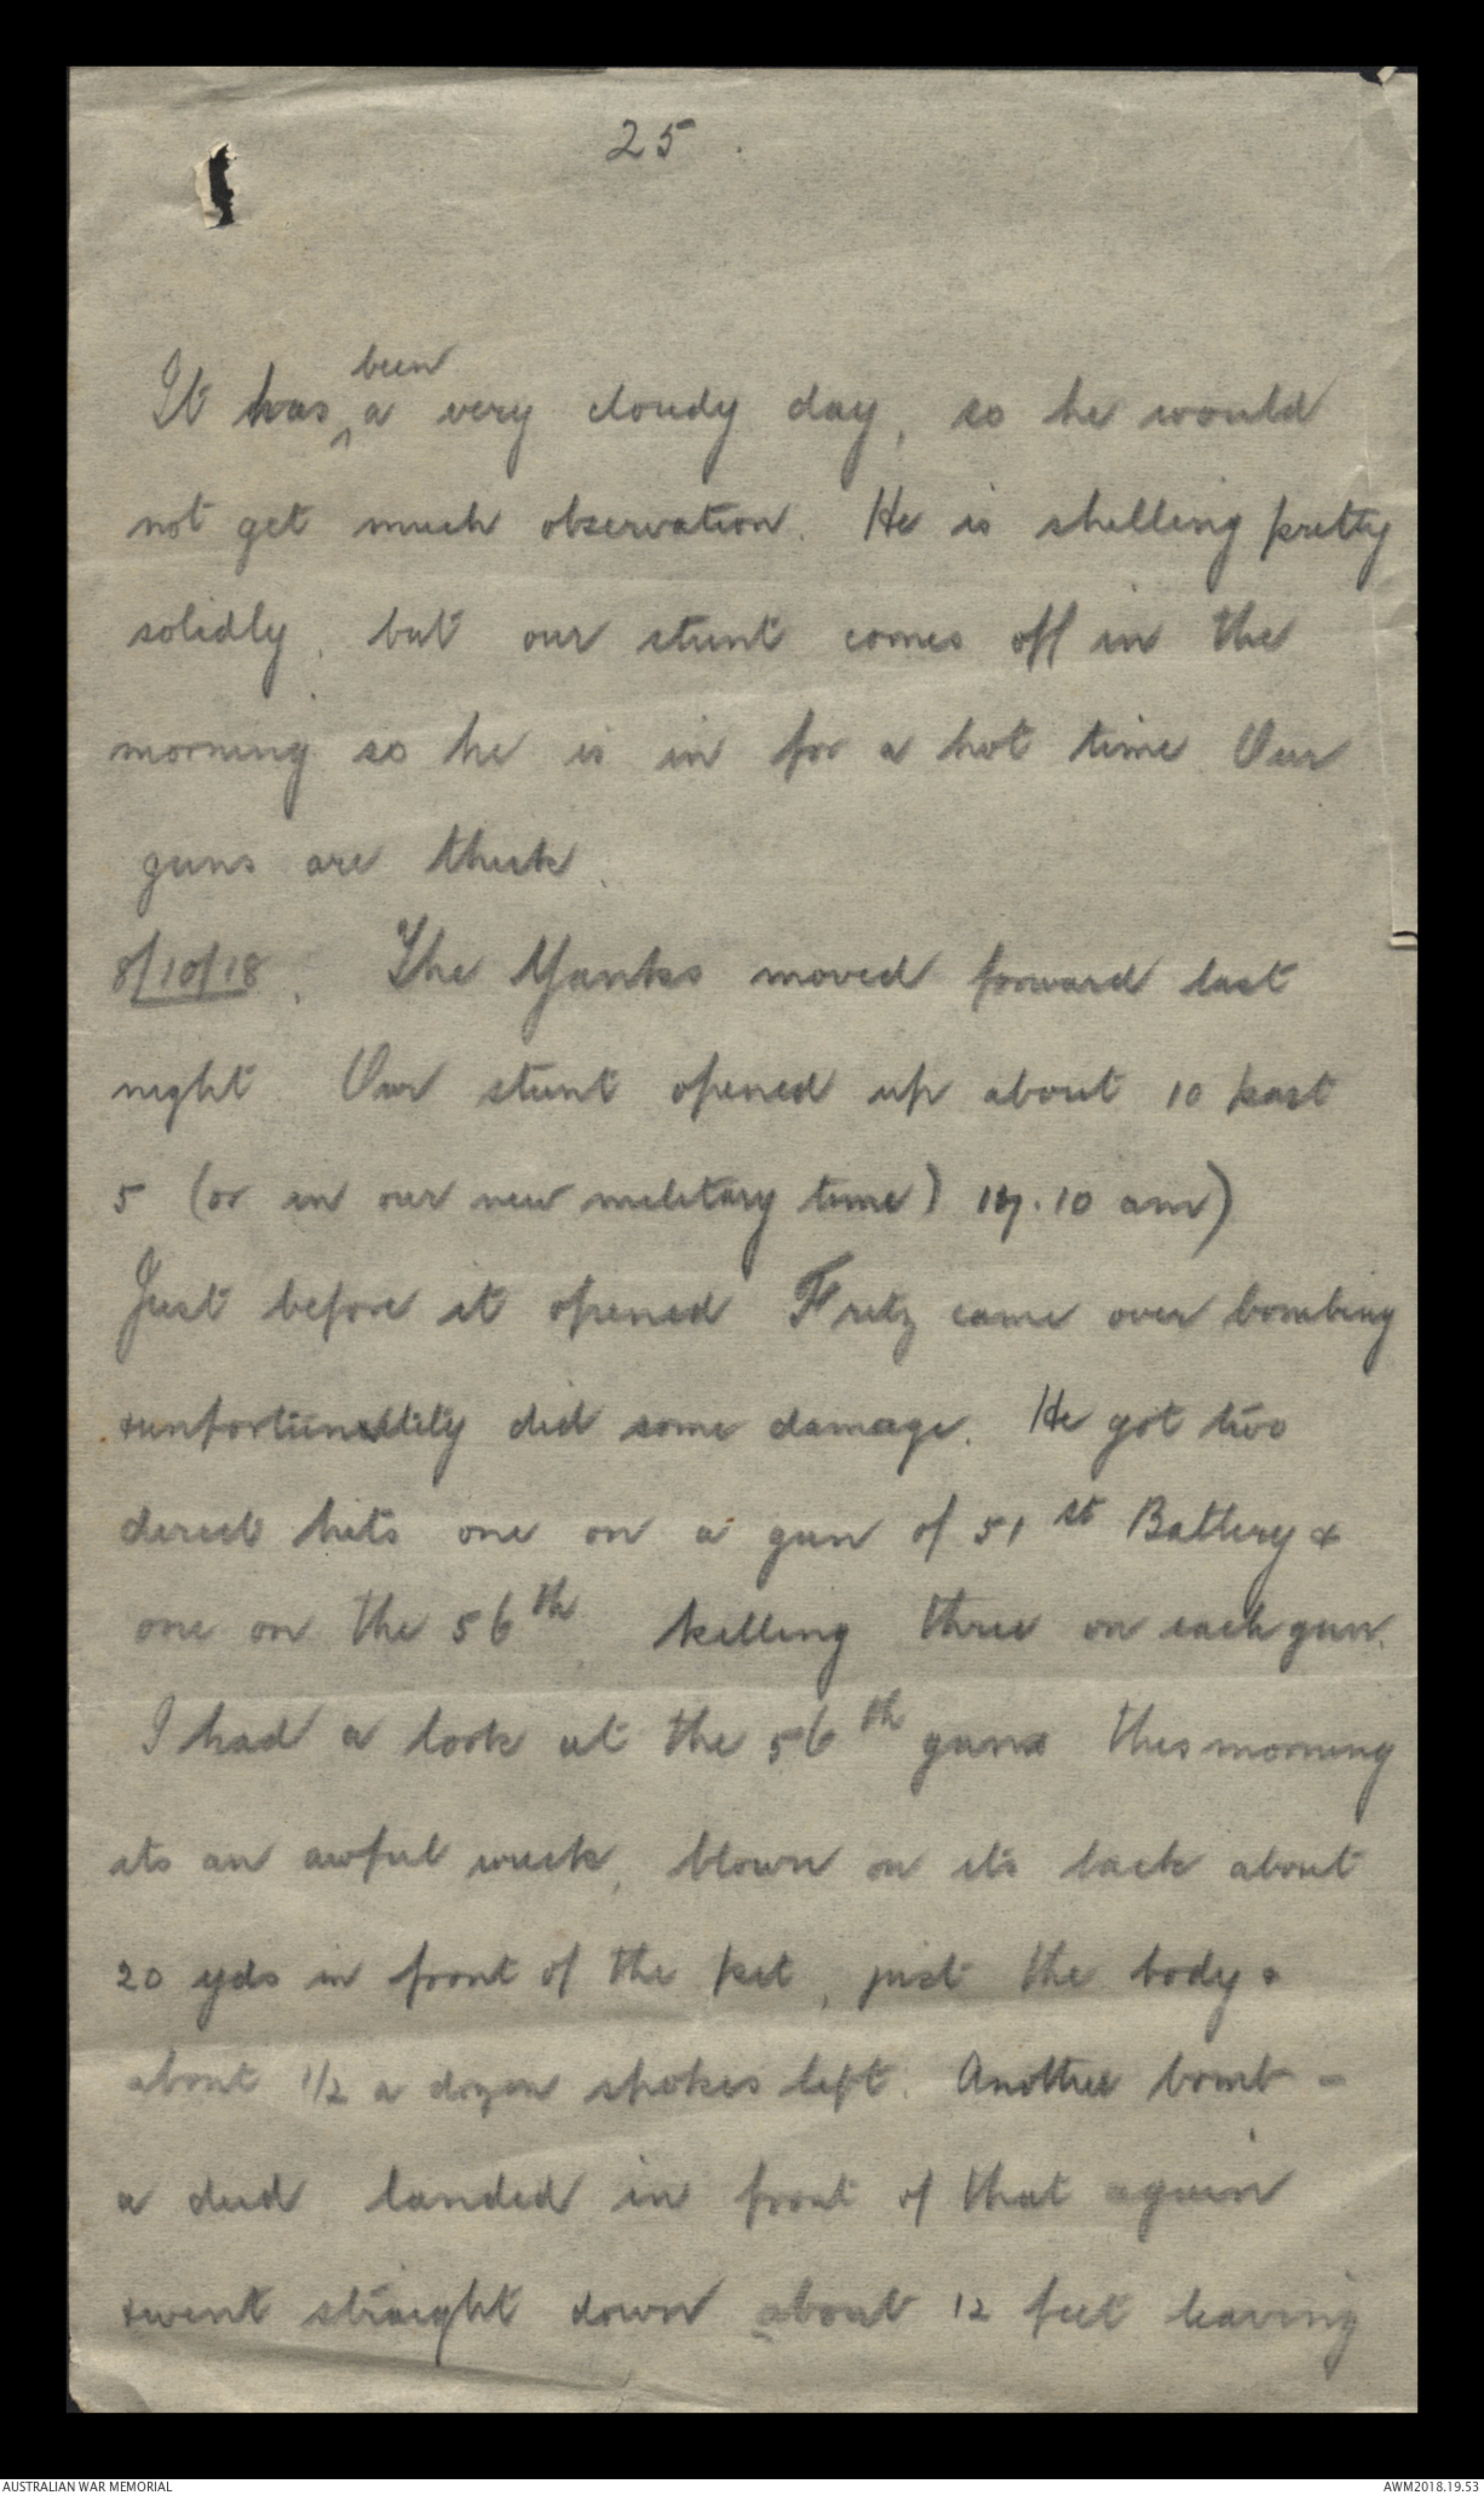 25.
been
It has ^ a very cloudy day, so he would
not get much observation. He is shelling pretty
solidly, but our stunt comes off in the
morning so he is in for a hot time Our
guns are thick.
8/10/18. The Yanks moved forward last
night. Our stunt opened up about 10 past
5 (or in our new military time) 17.10 am)
Just before it opened Fritz came over bombing
& unfortunately did some damage. He got two
direct hits one on a gun of 51st Battery &
one on the 56th, killing three on each gun.
I had a look at the 56th guns this morning
its an awful wreck, blown on its back about
20 yds in front of the pit, just the body &
about 1/2 a dozen spokes left. Another bomb -
a dud landed in front of that again
& went straight down about 12 feet leaving
AUSTRALIAN WAR MEMORIAL
AWM2018.19.53